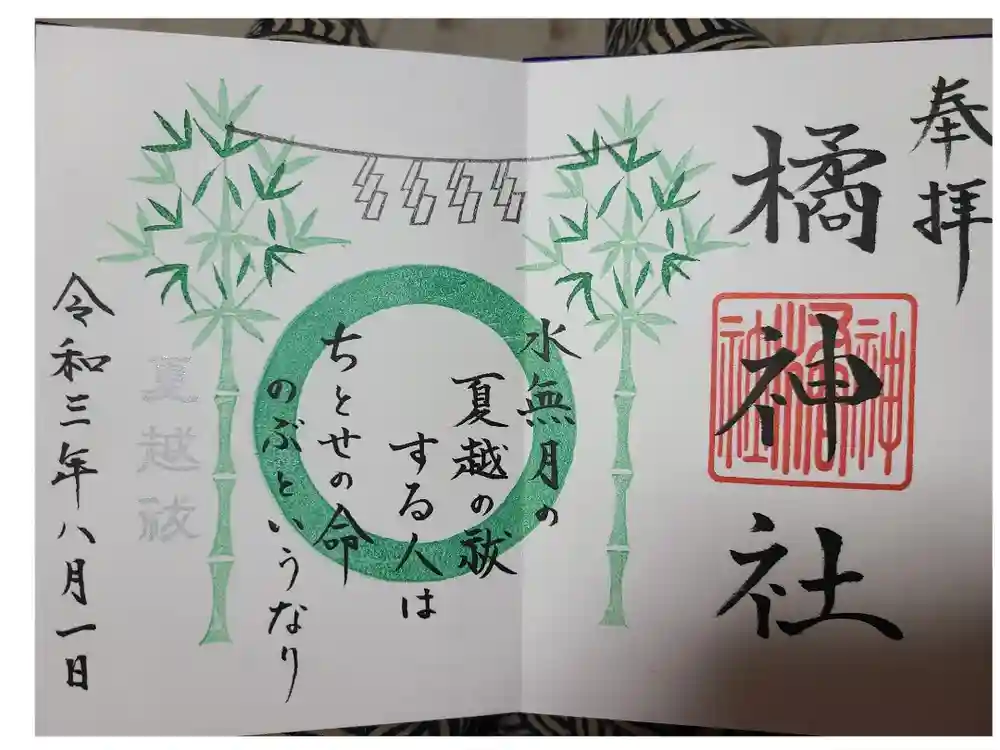 奉拝
橘神社
橘神社
水無月の
夏越の祓
する人は
ちとせの命
のぶというなり
夏越祓
令和三年八月一日